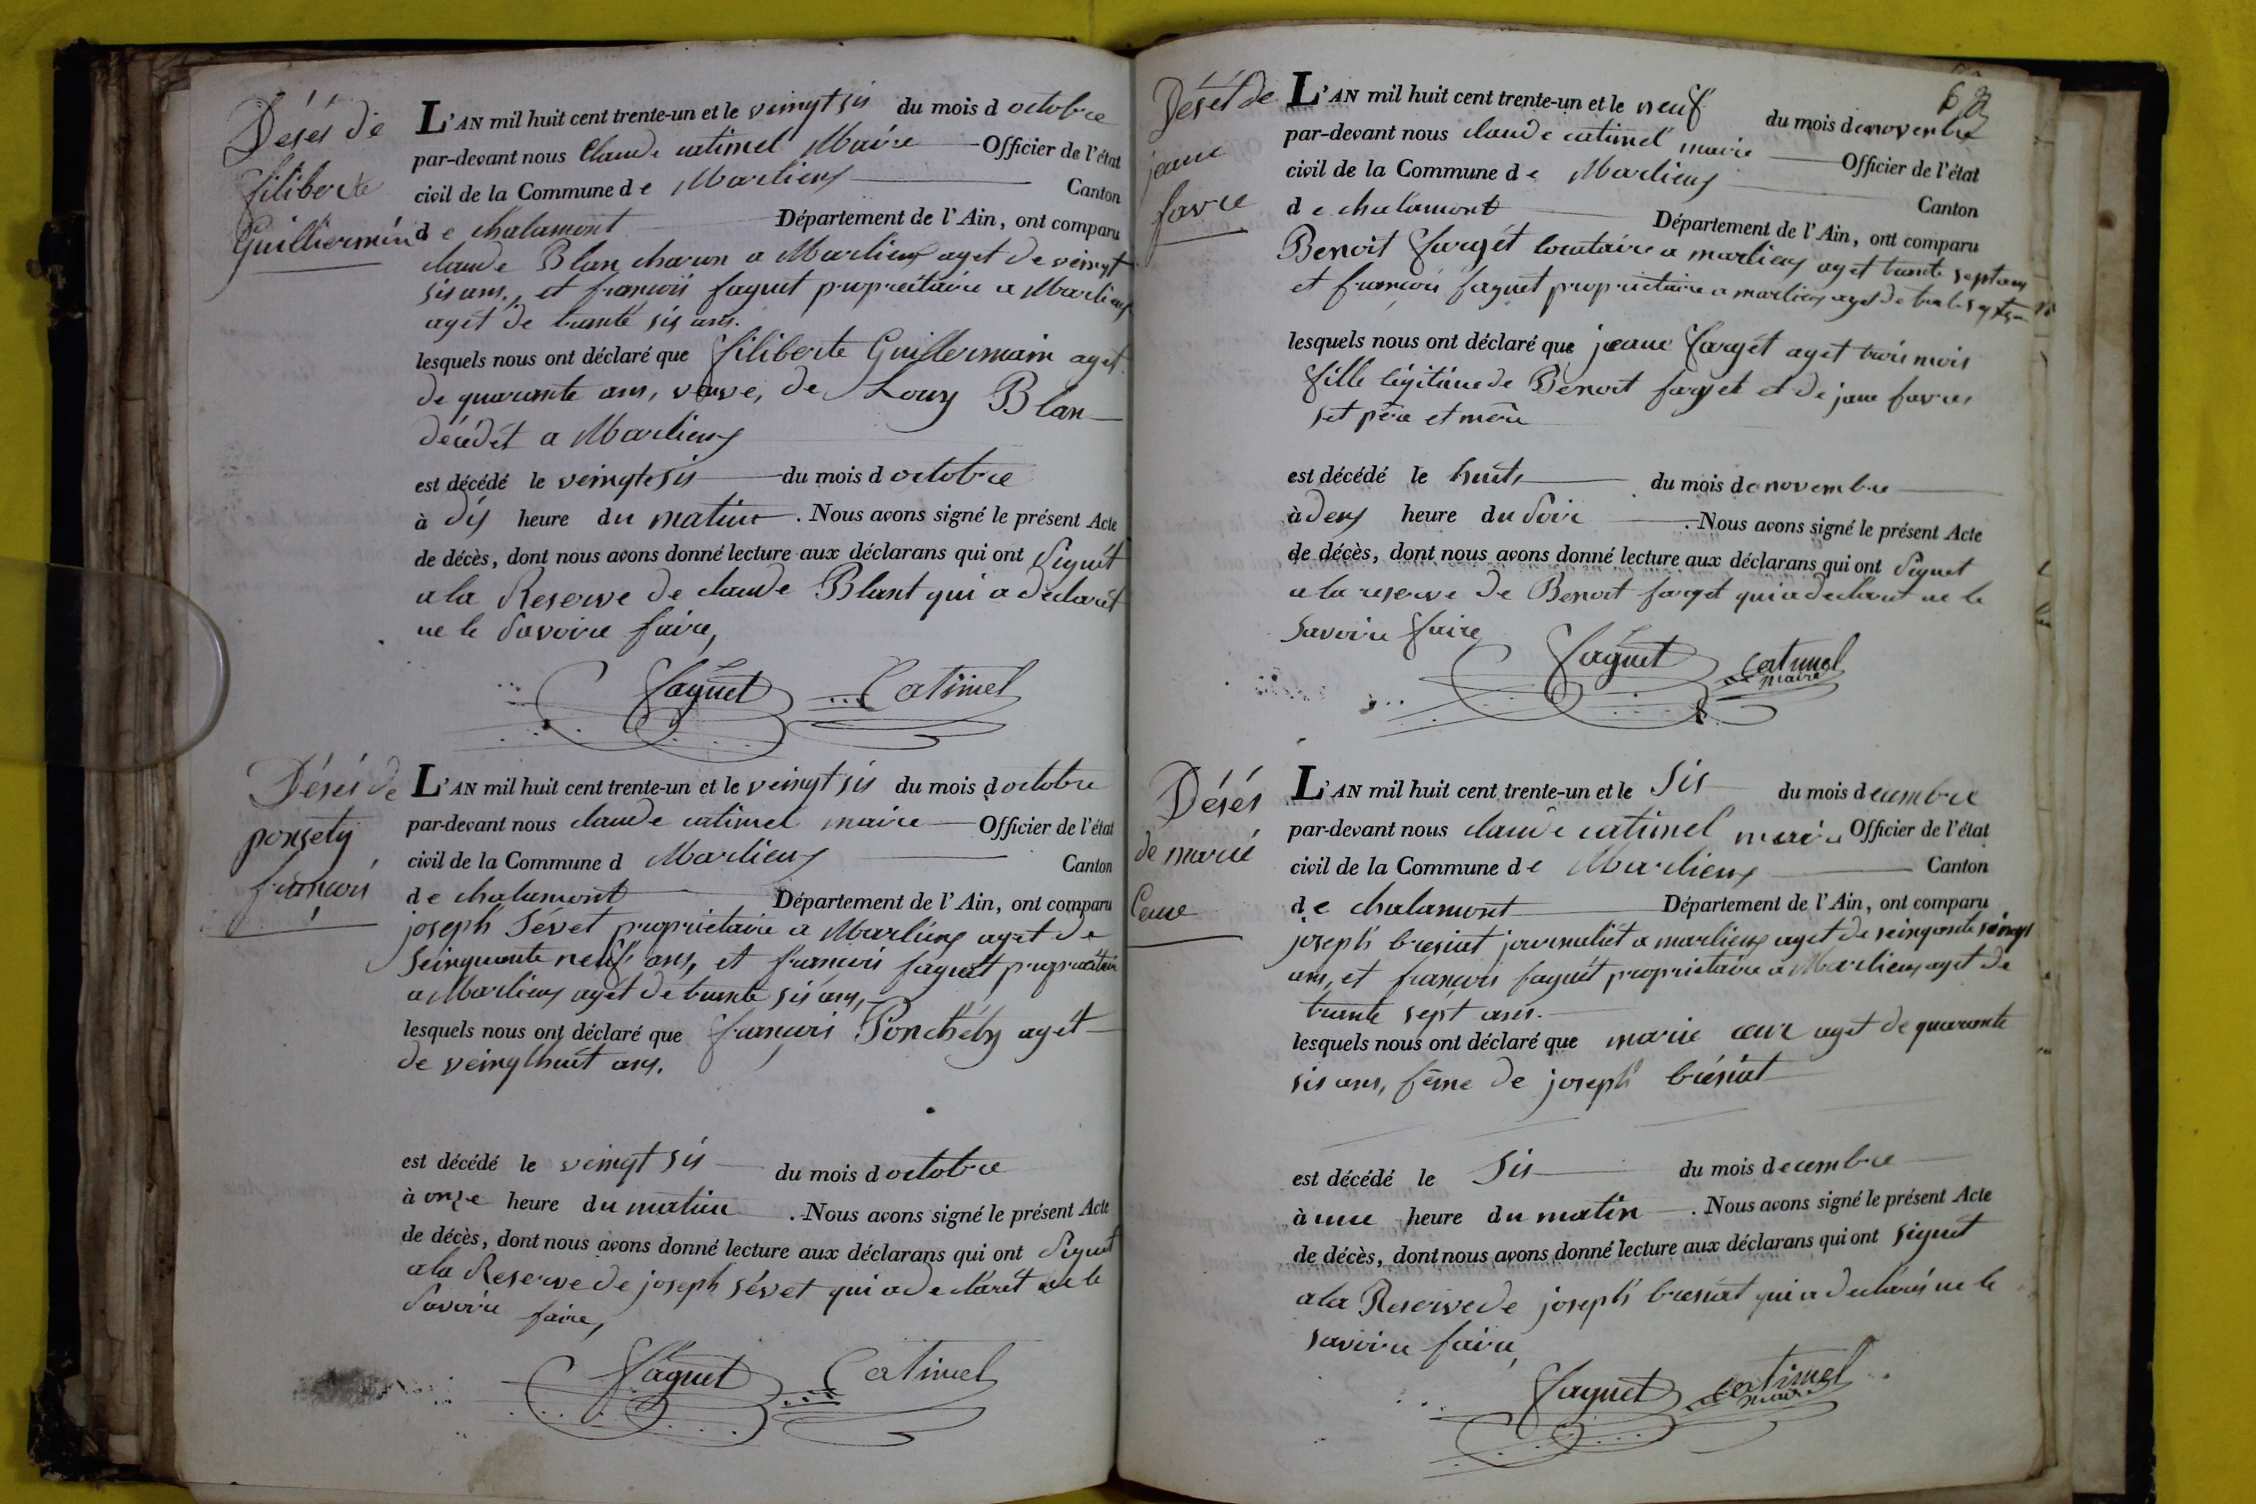 Désés de
filiberte
Guilliermin
L'AN mil huit cent trente-un et le veingt sis du mois d octobre
par-devant nous Claude catimel Maire Officier de l'état
civil de la Commune de Marlieux Canton
de chalamont Département de l'Ain, ont comparu
claude Blan charon a Marlieux aget de veingt
sis ans, et françois faguet proprietaire a Marlieux
aget de trante sis ans.
lesquels nous ont déclaré que filiberte Guillermain aget
de quarante ans, veuve, de Louy Blan
décédét a Marlieux
est décédé le veingt sis du mois d octobre
à dis heure du matin . Nous avons signé le présent Acte
de décès, dont nous avons donné lecture aux déclarans qui ont Signét
a la Reserve de claude Blant qui a déclarét
ne le Savoire faire,
faguet Catimel
Désés de
ponsety
françois
L'AN mil huit cent trente-un et le veingt sis du mois d octobre
par-devant nous claude catimel maire Officier de l'état
civil de la Commune d Marlieux Canton
de chalamont Département de l'Ain, ont comparu
joseph Sévet proprietaire a Marlieux aget de
Seinquante neuf ans, et francois faguet proprietaire
a Marlieux agét de trante sis ans,
lesquels nous ont déclaré que françois Ponchéty agét
de veingthuit ans.
est décédé le veingt sis du mois d octobre
à onze heure du matin . Nous avons signé le présent Acte
de décès, dont nous avons donné lecture aux déclarans qui ont Signet
a la Reserve de joseph sévet qui a declarét ne le
Savoire faire,
faguet Catimel
63
Dését de
jeane
favre
L'AN mil huit cent trente-un et le neuf du mois de novembre
par-devant nous claude catimel maire Officier de l'état
civil de la Commune de Marlieux Canton
de chalamont Département de l'Ain, ont comparu
Benoit fargét locataire a marlieux aget trante sept ans
et françois faguet proprietaire a marlieux aget de trante sept ans
lesquels nous ont déclaré que jeane fargét aget trois mois
fille légitime de Benoit farget et de jane favre,
set père et mère
est décédé le huit du mois de novembre
à deux heure du Soir . Nous avons signé le présent Acte
de décès, dont nous avons donné lecture aux déclarans qui ont Signet
a la reserve de Benoit farget qui a declaret ne le
Savoire faire
faguet catimel
maire
Désés
de marie
Ceur
L'AN mil huit cent trente-un et le Sis du mois decembre
par-devant nous claude catimel maire Officier de l'état
civil de la Commune de Marlieux Canton
de chalamont Département de l'Ain, ont comparu
joseph bresiat journaliét a marlieux aget de seinquante
ans, et françois faguét proprietaire a Marlieux aget de
trante sept ans.
lesquels nous ont déclaré que marie ceur aget de quarante
sis ans, fême de joseph brésiat
est décédé le Sis du mois decembre
à une heure du matin . Nous avons signé le présent Acte
de décès, dont nous avons donné lecture aux déclarans qui ont signet
a la Reserve de joseph bresiat qui a declarés ne le
savoire faire,
faguet catimel
maire